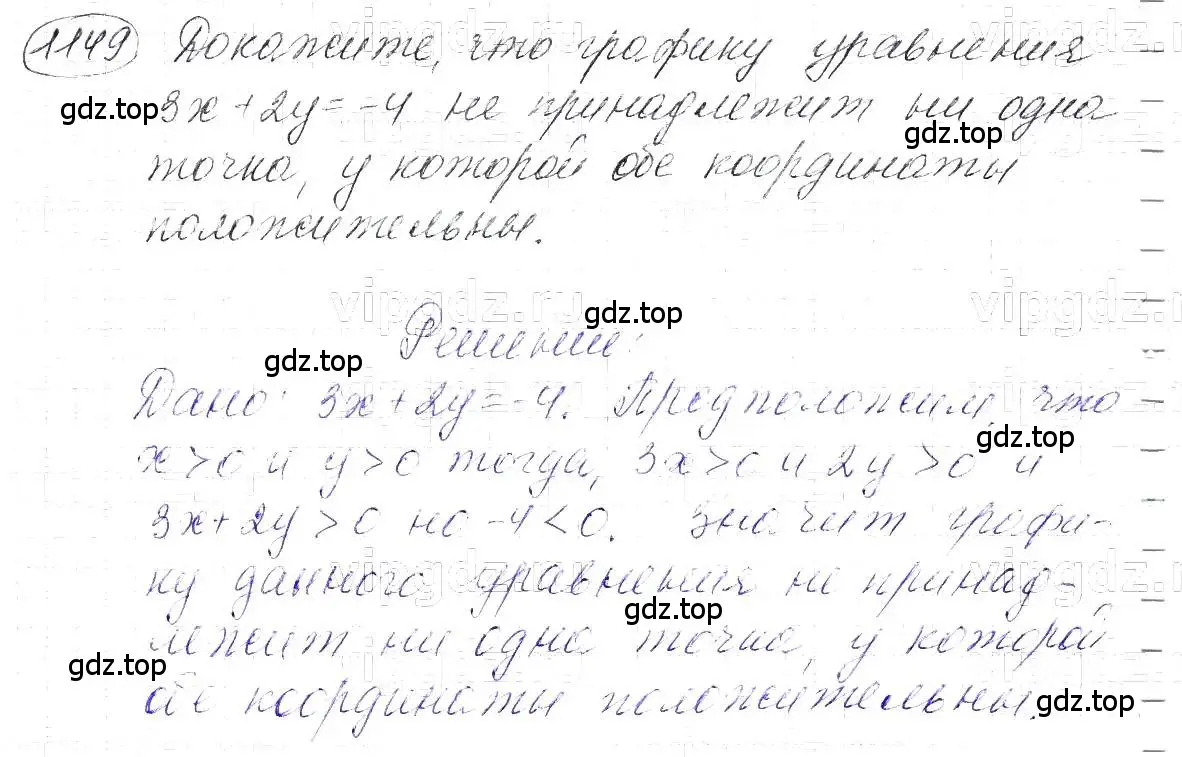 1149 Докажите, что графику уравнения
3x + 2y = -4 не принадлежит ни одна
точка, у которой обе координаты
положительны.
Решение:
Дано: 3x + 2y = -4. Предположим, что
x > 0 и y > 0 тогда, 3x > 0 и 2y > 0 и
3x + 2y > 0 но -4 < 0. Значит графи-
ку данного уравнения не принад-
лежит ни одна точка, у которой
обе координаты положительны.
vipgdz.ru
vipgdz.r
gdz.top
gdz.top
vipgdz.ru
vipgdz.r
gdz.top
gdz.top
gdz.top
gdz.top
vipgdz.ru
vipgdz.r
gdz.top
gdz.top
gdz.top